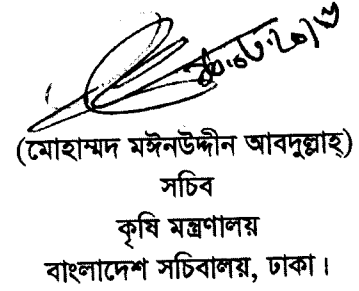 (মোহাম্মদ মঈনউদ্দীন আবদুল্লাহ্)
সচিব
কৃষি মন্ত্রণালয়
বাংলাদেশ সচিবালয়, ঢাকা।